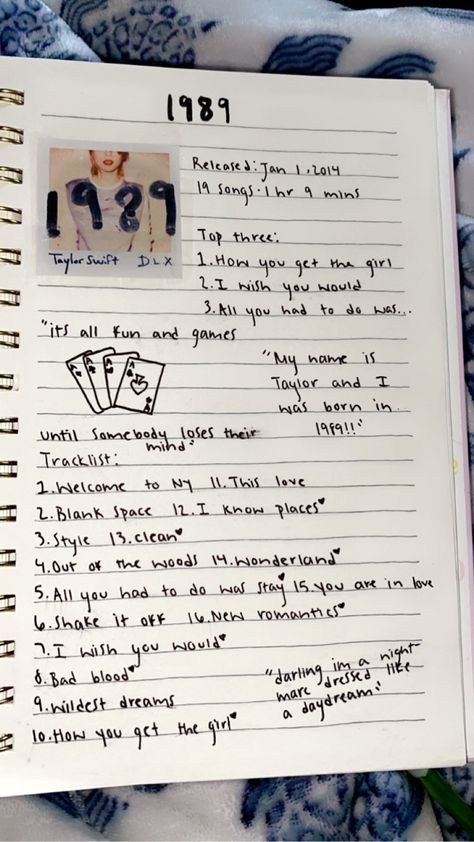 1989
1989
Taylor Swift DLX
Released: Jan 1, 2014
19 songs · 1 hr 9 mins
Top three:
1. How you get the girl
2. I wish you would
3. All you had to do was...
"its all fun and games
until somebody loses their
mind"
"My name is
Taylor and I
was born in
1989!!"
Tracklist:
1. Welcome to NY 11. This love
2. Blank Space 12. I know places♥
3. Style 13. clean♥
4. Out of the woods 14. Wonderland♥
5. All you had to do was stay♥ 15. you are in love
6. Shake it off 16. New romantics♥
7. I wish you would♥
8. Bad blood♥
9. Wildest dreams
10. How you get the girl♥
"darling im a night
mare dressed like
a daydream"